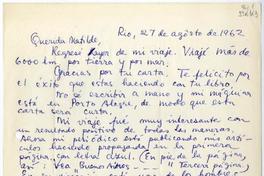 Rio, 27 de agosto de 1962
Querida Matilde,
Regresé ayer de mi viaje. Viajé más de
6000 km por tierra y por mar.
Gracias por tu carta. Te felicito por
el éxito que estas haciendo con tu libro.
No sé escribir a mano y mi máquina
está en Porto Alegre, de modo que esta
carta sera curta.
Mi viaje fué muy interesante con
un resultado positivo de todas las maneras.
Ahora mi periódico está publicando mis artí-
culos haciendo propaganda en la primera
página, con letra azul. En pie de la página,
así: "Vea Buenos Aires — Tercera página".
de los hombre